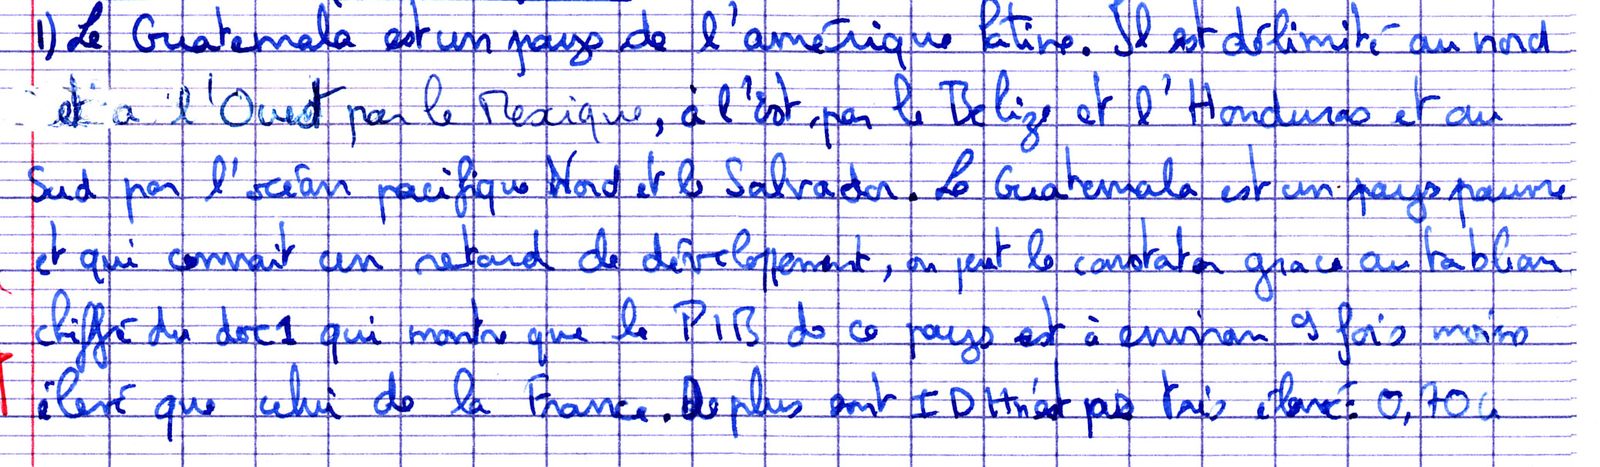 1) Le Guatemala est un pays de l'amérique latine. Il est délimité au nord
et a l'Ouest par le Mexique, à l'Est, par le Belize et l'Honduras et au
Sud par l'océan pacifique Nord et le Salvador. Le Guatemala est un pays pauvre
et qui connait un retard de développement, on peut le constater grace au tableau
chiffré du doc1 qui montre que le PIB de ce pays est à environ 9 fois moins
élevé que celui de la France. De plus sont IDH n'est pas très élevé : 0,704